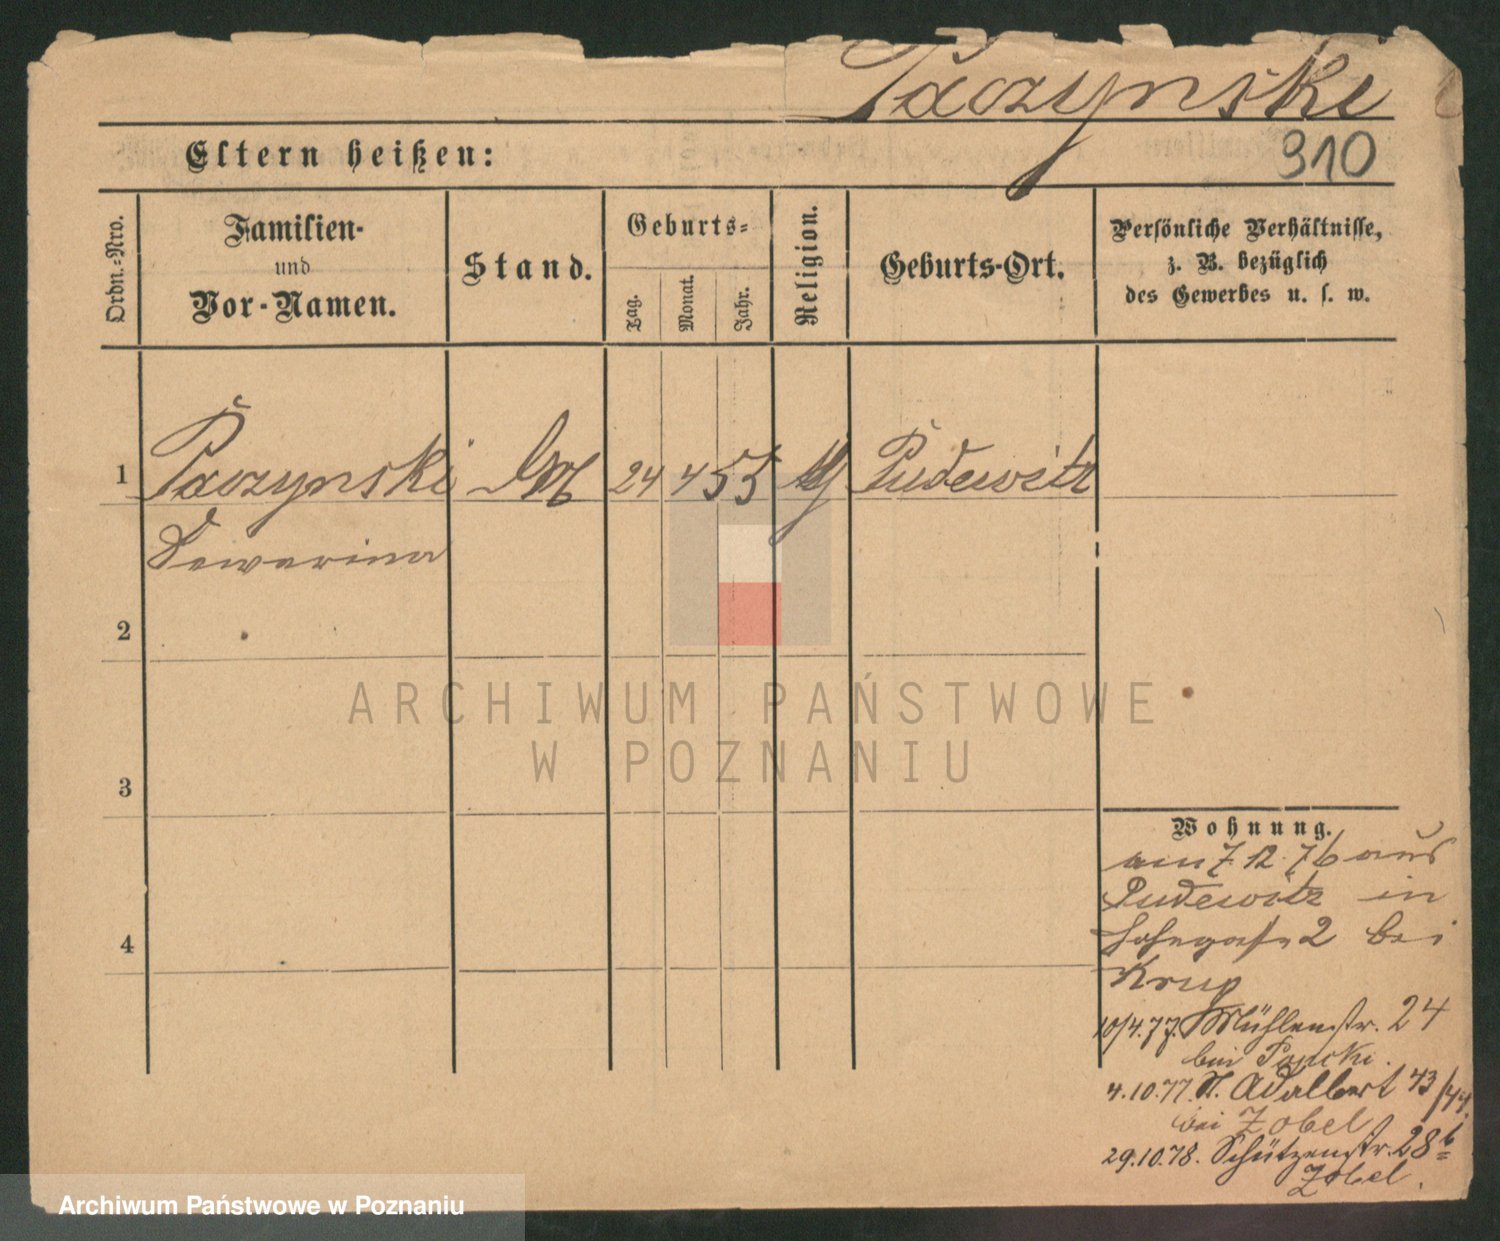 Paczynski
910
Eltern heißen:
Ordn.-Nro.
Familien-
und
Vor-Namen.
Stand.
Geburts-
Tag.
Monat.
Jahr.
Religion.
Geburts-Ort.
Persönliche Verhältnisse,
z. B. bezüglich
des Gewerbes u. s. w.
1
Paczynski
24 4 55
Pudewitz
Sewerina
2
3
4
Wohnung.
am 7.12.76 aus
Pudewitz in
2 bei
Krug
10/4.77. Mühlenstr. 24
bei
4.10.77. St. Adalbert 43/44.
bei Zobel
29.10.78. Schützenstr. 28b
Zobel.
ARCHIWUM PAŃSTWOWE
W POZNANIU
Archiwum Państwowe w Poznaniu